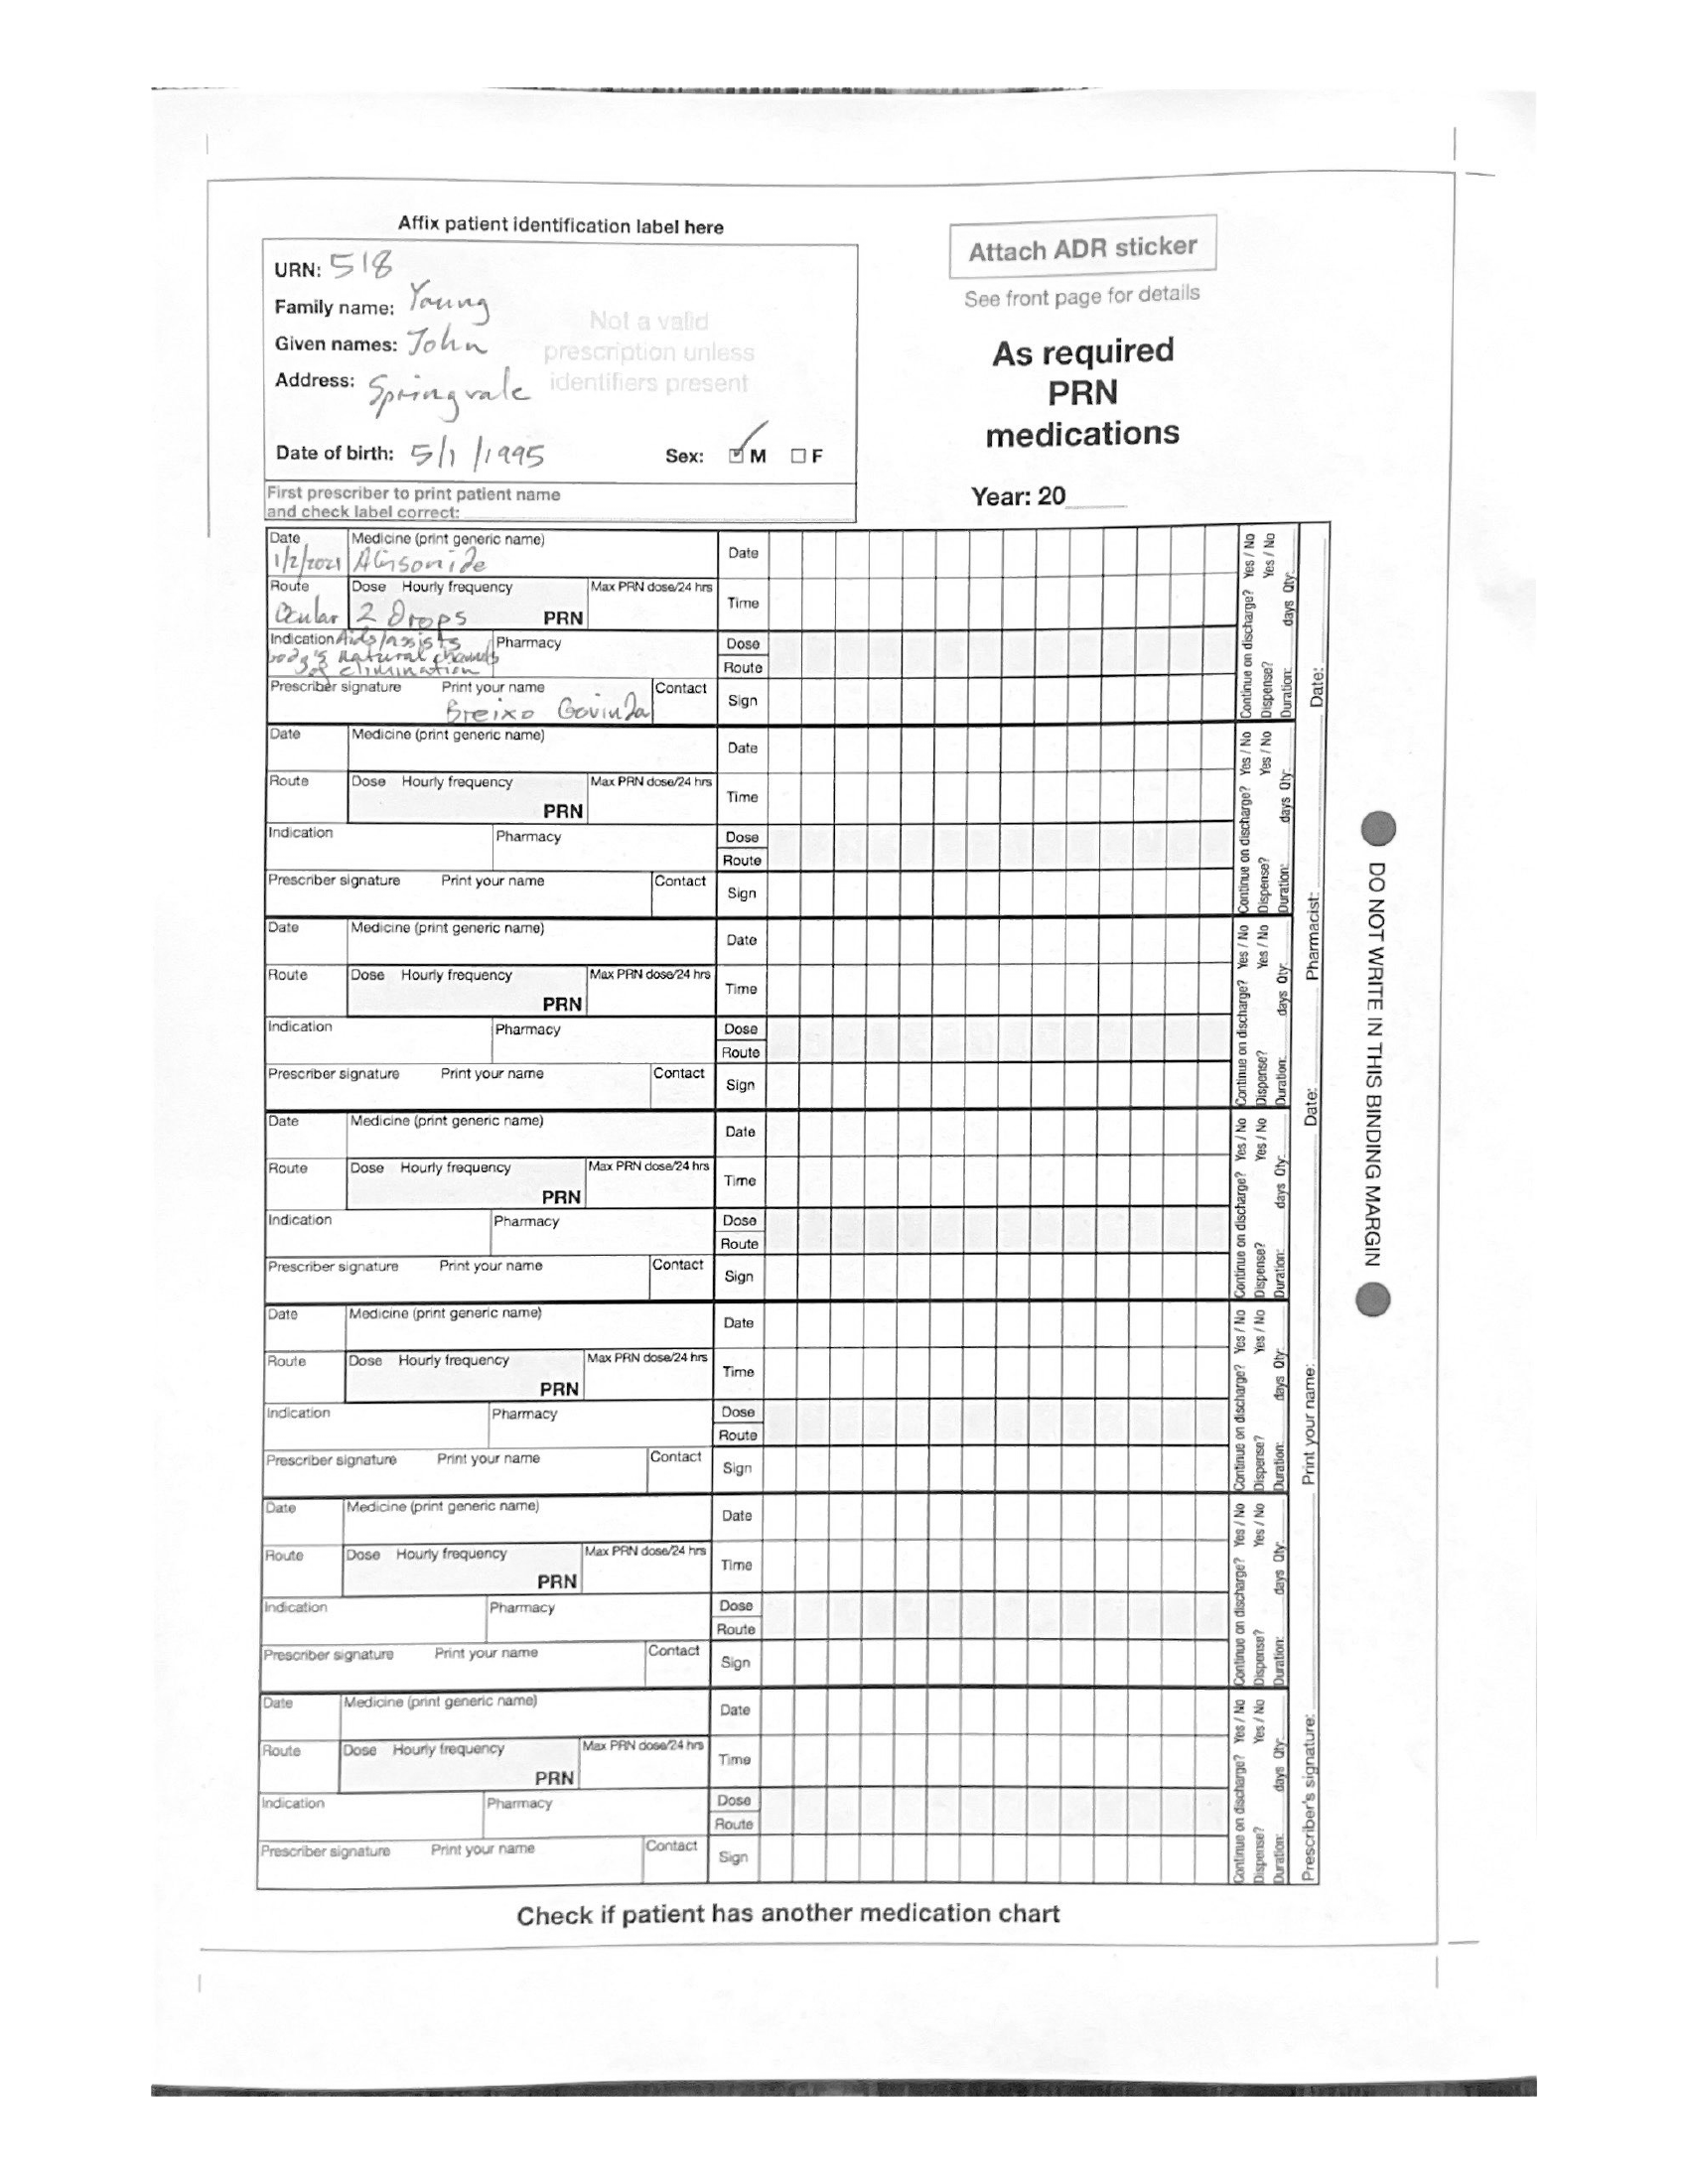 Affix patient identification label here
URN: 518
Family name: Young
Given names: John
Address: Springvale
Not a valid
prescription unless
identifiers present
Date of birth: 5/1/1995 Sex: M F
First prescriber to print patient name
and check label correct:
Attach ADR sticker
See front page for details
As required
PRN
medications
Year: 20
Date Medicine (print generic name) Date
1/2/2021
Route Dose Hourly frequency Max PRN dose/24 hrs Time
Ocular 2 Drops PRN
Indication Aids/assists Pharmacy Dose
body's natural channels
of elimination Route
Prescriber signature Print your name Contact Sign
Breixo Govinda
Continue on discharge? Yes / No
Dispense? Yes / No
Duration: days Qty:
Date Medicine (print generic name) Date
Route Dose Hourly frequency Max PRN dose/24 hrs Time
PRN
Indication Pharmacy Dose
Route
Prescriber signature Print your name Contact Sign
Continue on discharge? Yes / No
Dispense? Yes / No
Duration: days Qty:
Date Medicine (print generic name) Date
Route Dose Hourly frequency Max PRN dose/24 hrs Time
PRN
Indication Pharmacy Dose
Route
Prescriber signature Print your name Contact Sign
Continue on discharge? Yes / No
Dispense? Yes / No
Duration: days Qty:
Date Medicine (print generic name) Date
Route Dose Hourly frequency Max PRN dose/24 hrs Time
PRN
Indication Pharmacy Dose
Route
Prescriber signature Print your name Contact Sign
Continue on discharge? Yes / No
Dispense? Yes / No
Duration: days Qty:
Date Medicine (print generic name) Date
Route Dose Hourly frequency Max PRN dose/24 hrs Time
PRN
Indication Pharmacy Dose
Route
Prescriber signature Print your name Contact Sign
Continue on discharge? Yes / No
Dispense? Yes / No
Duration: days Qty:
Date Medicine (print generic name) Date
Route Dose Hourly frequency Max PRN dose/24 hrs Time
PRN
Indication Pharmacy Dose
Route
Prescriber signature Print your name Contact Sign
Continue on discharge? Yes / No
Dispense? Yes / No
Duration: days Qty:
Date Medicine (print generic name) Date
Route Dose Hourly frequency Max PRN dose/24 hrs Time
PRN
Indication Pharmacy Dose
Route
Prescriber signature Print your name Contact Sign
Continue on discharge? Yes / No
Dispense? Yes / No
Duration: days Qty:
Prescriber's signature: Print your name: Date: Pharmacist: Date:
DO NOT WRITE IN THIS BINDING MARGIN
Check if patient has another medication chart